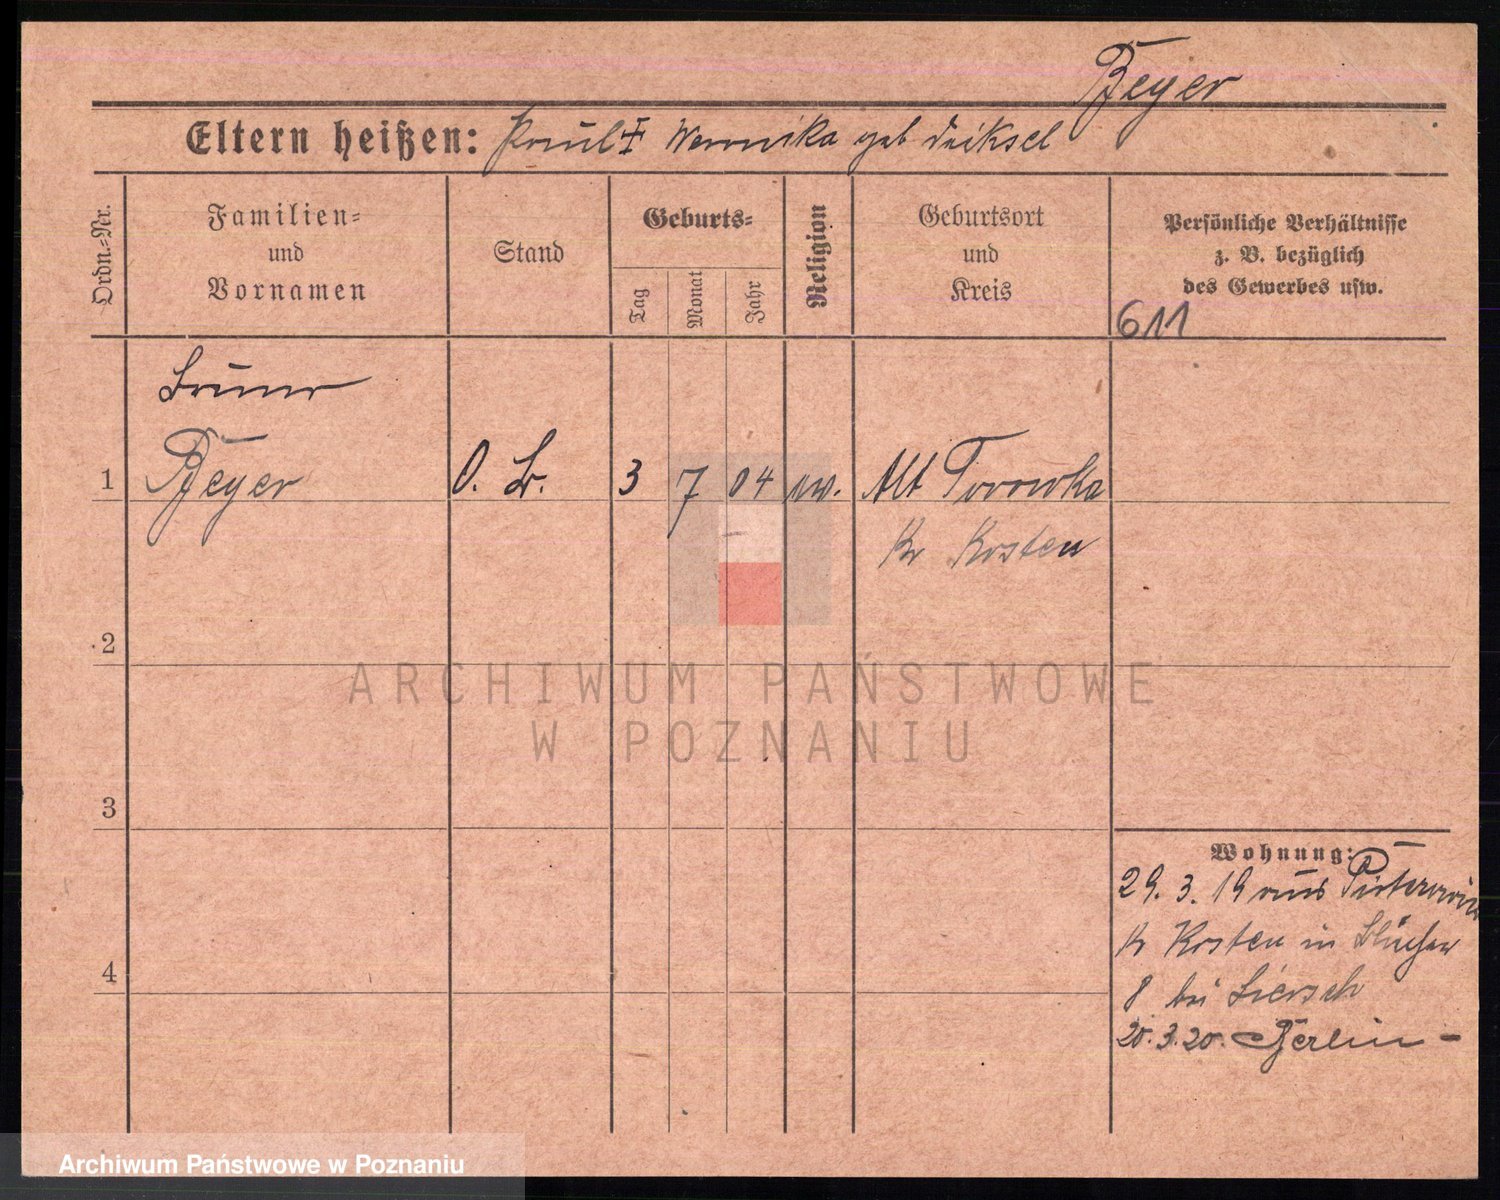 Beyer
Eltern heißen: Paul Weronika geb Deiksel
Ordn.-Nr.
Familien-
und
Vornamen
Stand
Geburts-
Tag
Monat
Jahr
Religion
Geburtsort
und
Kreis
Persönliche Verhältnisse
z. B. bezüglich
des Gewerbes usw.
611
Bruno
1 Beyer 3 7 04 Alt
Kr Kosten
2
3
4
Wohnung:
29. 3. 19 aus
Kr Kosten in Blücher
8 bei Liersch
20.3.20. Berlin -
ARCHIWUM PAŃSTWOWE
W POZNANIU
Archiwum Państwowe w Poznaniu